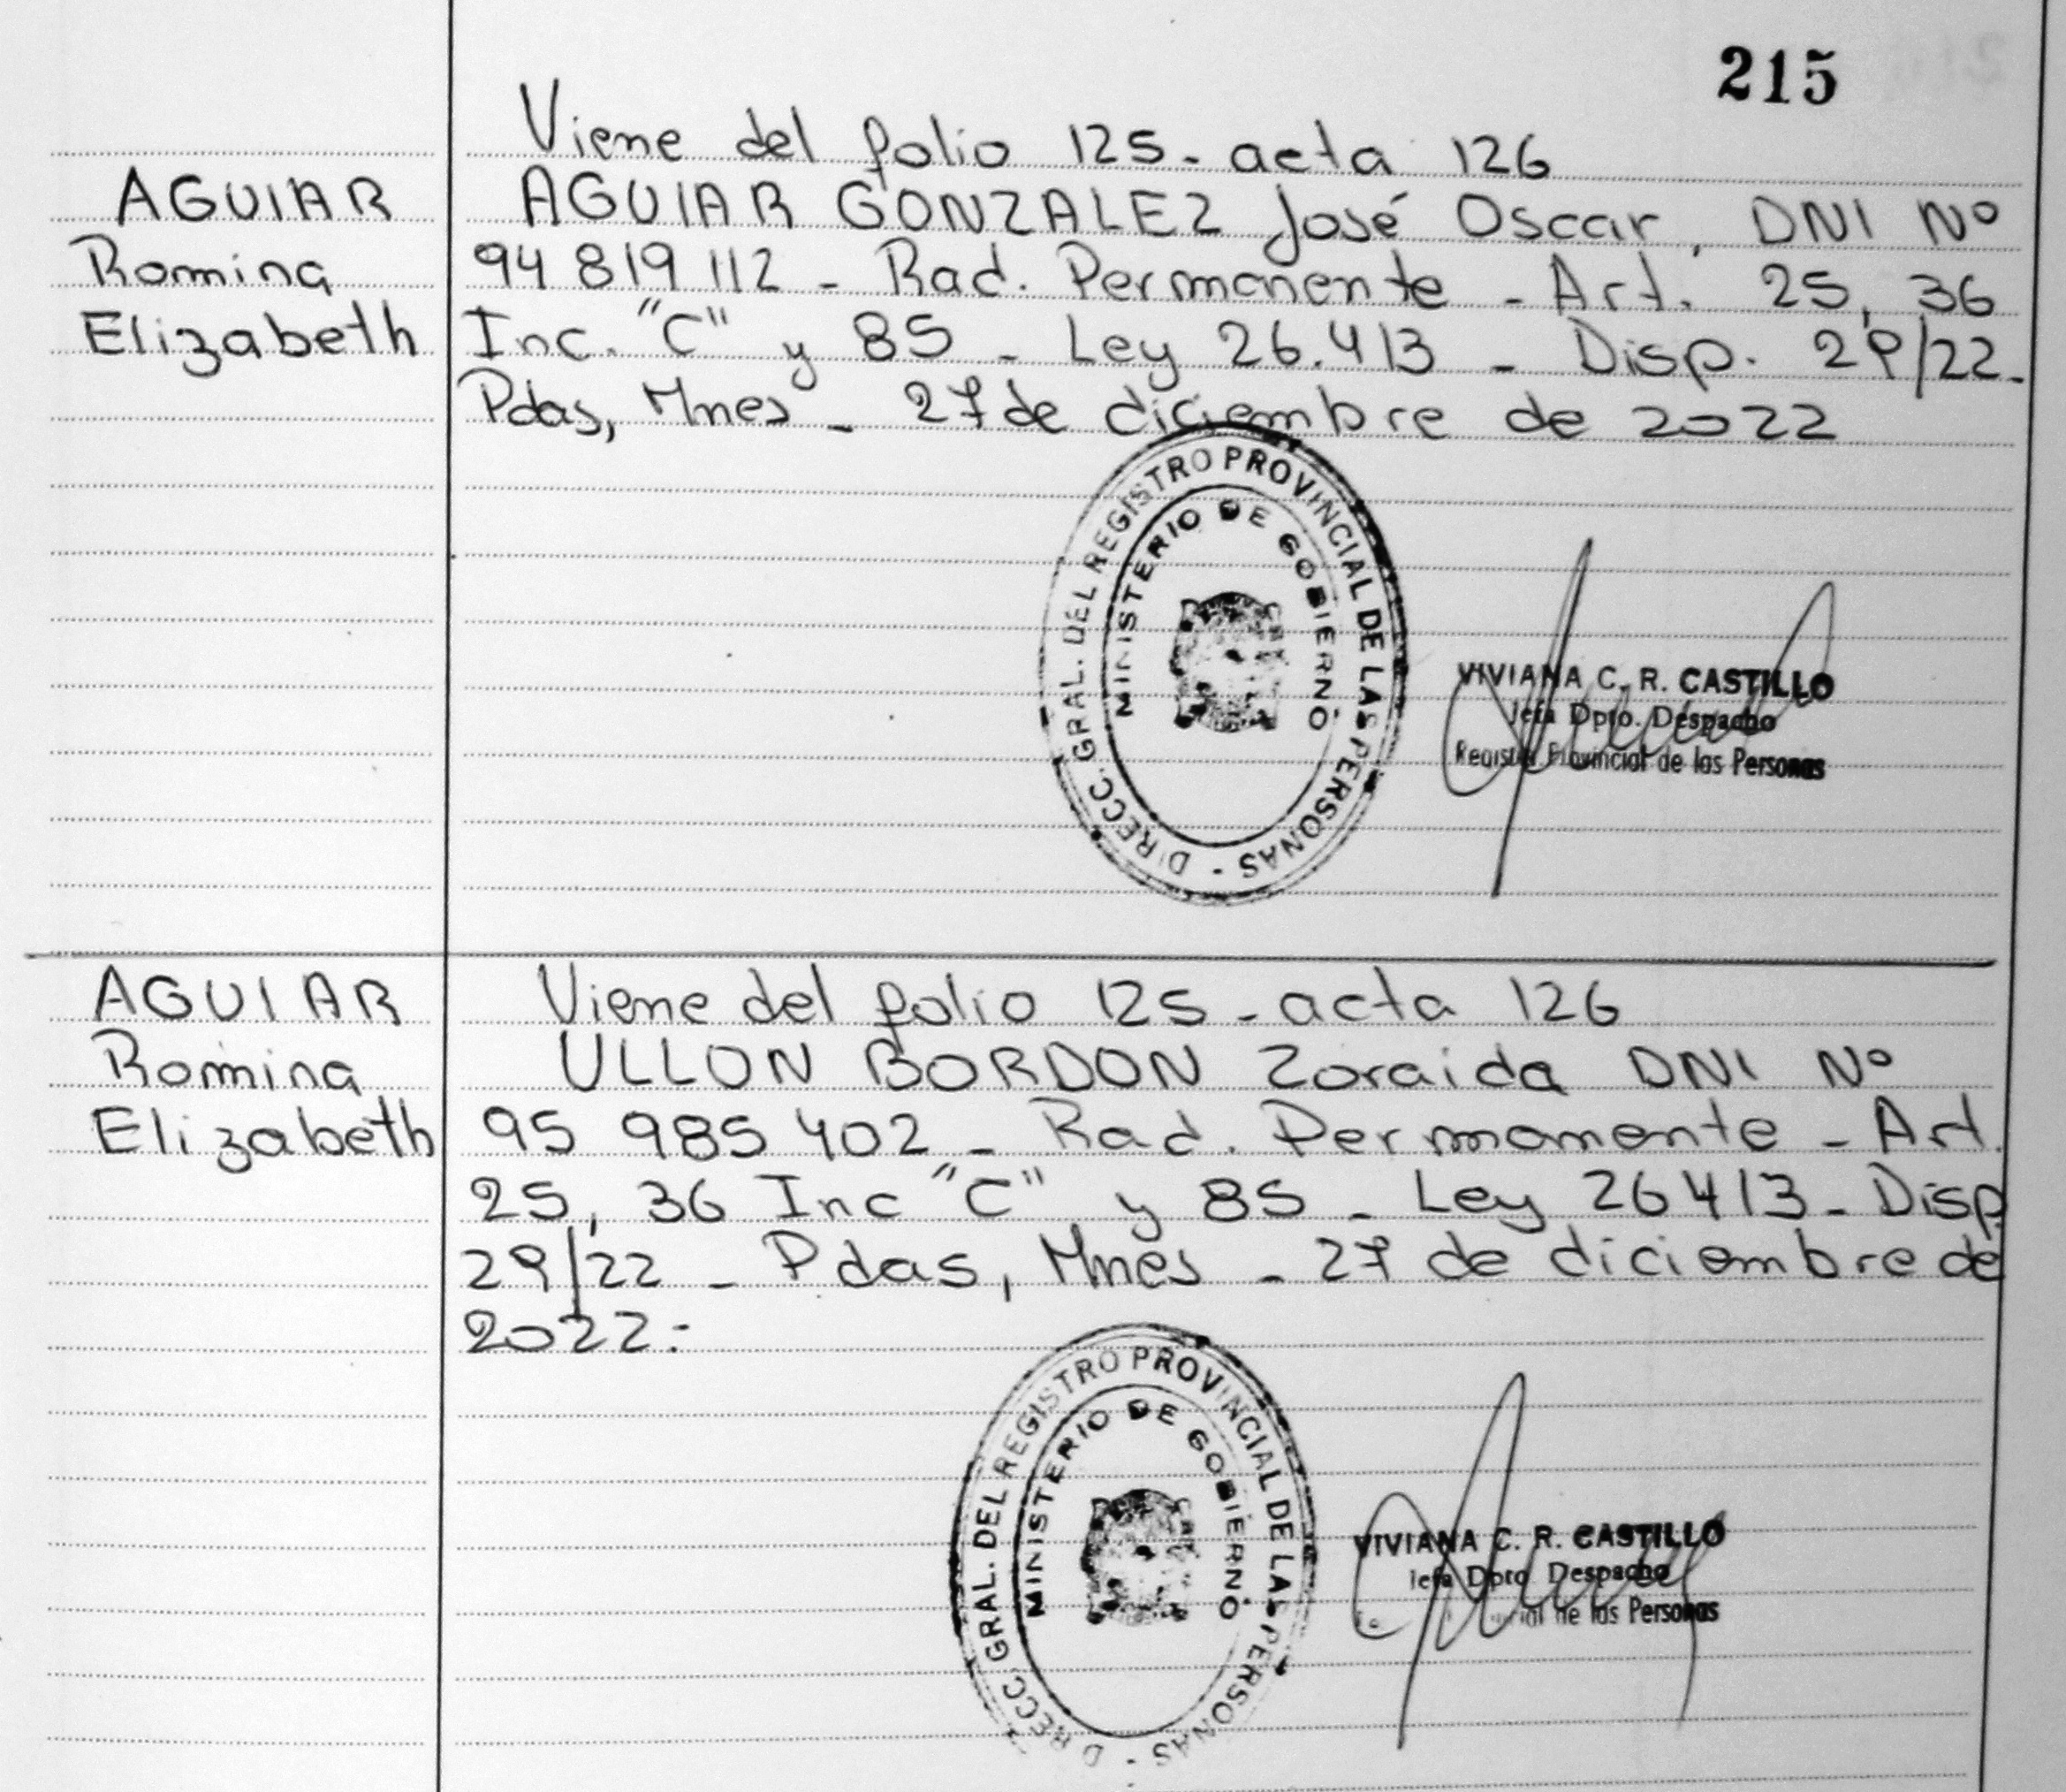 215
Viene del folio 125 - acta 126
AGUIAR
Romina
Elizabeth
AGUIAR GONZALEZ José Oscar, DNI Nº
94 819 112 - Rad. Permanente - Art. 25, 36
Inc. "C" y 85 - Ley 26.413 - Disp. 29/22 -
Pdas, Mnes - 27 de diciembre de 2022
DIRECC. GRAL. DEL REGISTRO PROVINCIAL DE LAS PERSONAS -
MINISTERIO DE GOBIERNO
VIVIANA C. R. CASTILLO
Jefa Dpto. Despacho
Registro Provincial de las Personas
AGUIAR
Romina
Elizabeth
Viene del folio 125 - acta 126
ULLON BORDON Zoraida DNI Nº
95 985 402 - Rad. Permanente - Art.
25, 36 Inc "C" y 85 - Ley 26 413 - Disp
29/22 - Pdas, Mnes - 27 de diciembre de
2022:
DIRECC. GRAL. DEL REGISTRO PROVINCIAL DE LAS PERSONAS -
MINISTERIO DE GOBIERNO
VIVIANA C. R. CASTILLO
Jefa Dpto. Despacho
de las Personas